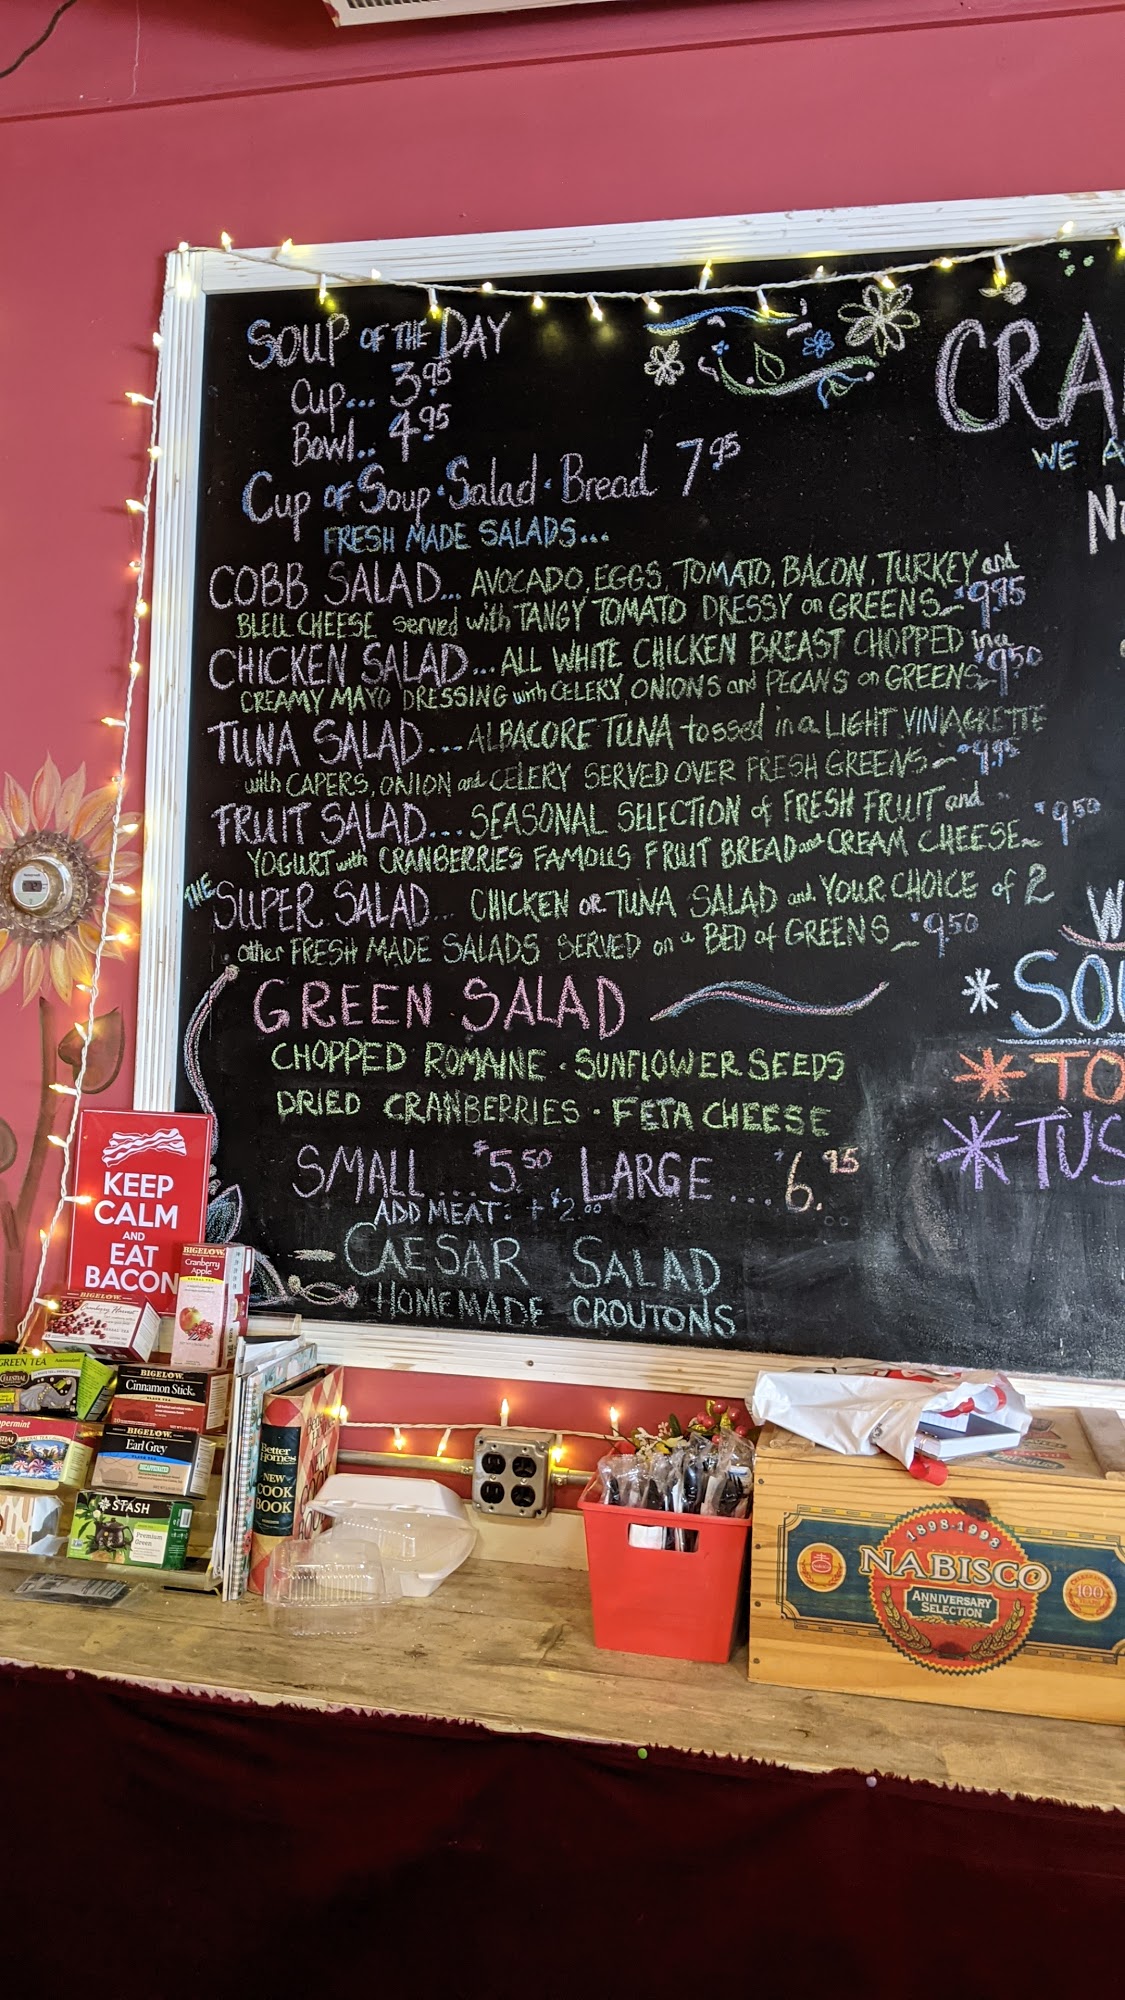 SOUP OF THE DAY
Cup... 3.95
Bowl.. 4.95
Cup of Soup · Salad · Bread 7.95
FRESH MADE SALADS...
COBB SALAD... AVOCADO, EGGS, TOMATO, BACON, TURKEY and
BLEU CHEESE served with TANGY TOMATO DRESSY on GREENS $9.95
CHICKEN SALAD... ALL WHITE CHICKEN BREAST CHOPPED in a
CREAMY MAYO DRESSING with CELERY, ONIONS and PECANS on GREENS $9.50
TUNA SALAD.... ALBACORE TUNA tossed in a LIGHT VINIAGRETTE
with CAPERS, ONION and CELERY SERVED OVER FRESH GREENS $9.95
FRUIT SALAD.... SEASONAL SELECTION of FRESH FRUIT and
YOGURT with CRANBERRIES FAMOUS FRUIT BREAD and CREAM CHEESE $9.50
THE SUPER SALAD... CHICKEN OR TUNA SALAD and YOUR CHOICE of 2
other FRESH MADE SALADS SERVED on a BED of GREENS $9.50
GREEN SALAD
CHOPPED ROMAINE · SUNFLOWER SEEDS
DRIED CRANBERRIES · FETA CHEESE
SMALL... $5.50 LARGE... $6.95
ADD MEAT: + $2.00
CAESAR SALAD
HOMEMADE CROUTONS
CRA
WE A
N
W
SOU
TO
TUS
KEEP
CALM
AND
EAT
BACON
BIGELOW
Cranberry
Apple
BIGELOW
Cranberry Harvest
GREEN TEA
CELESTIAL
BIGELOW
Cinnamon Stick
BIGELOW
Earl Grey
permint
STASH
Premium
Green
Better
Homes
NEW
COOK
BOOK
1898-1998
NABISCO
ANNIVERSARY
SELECTION
100